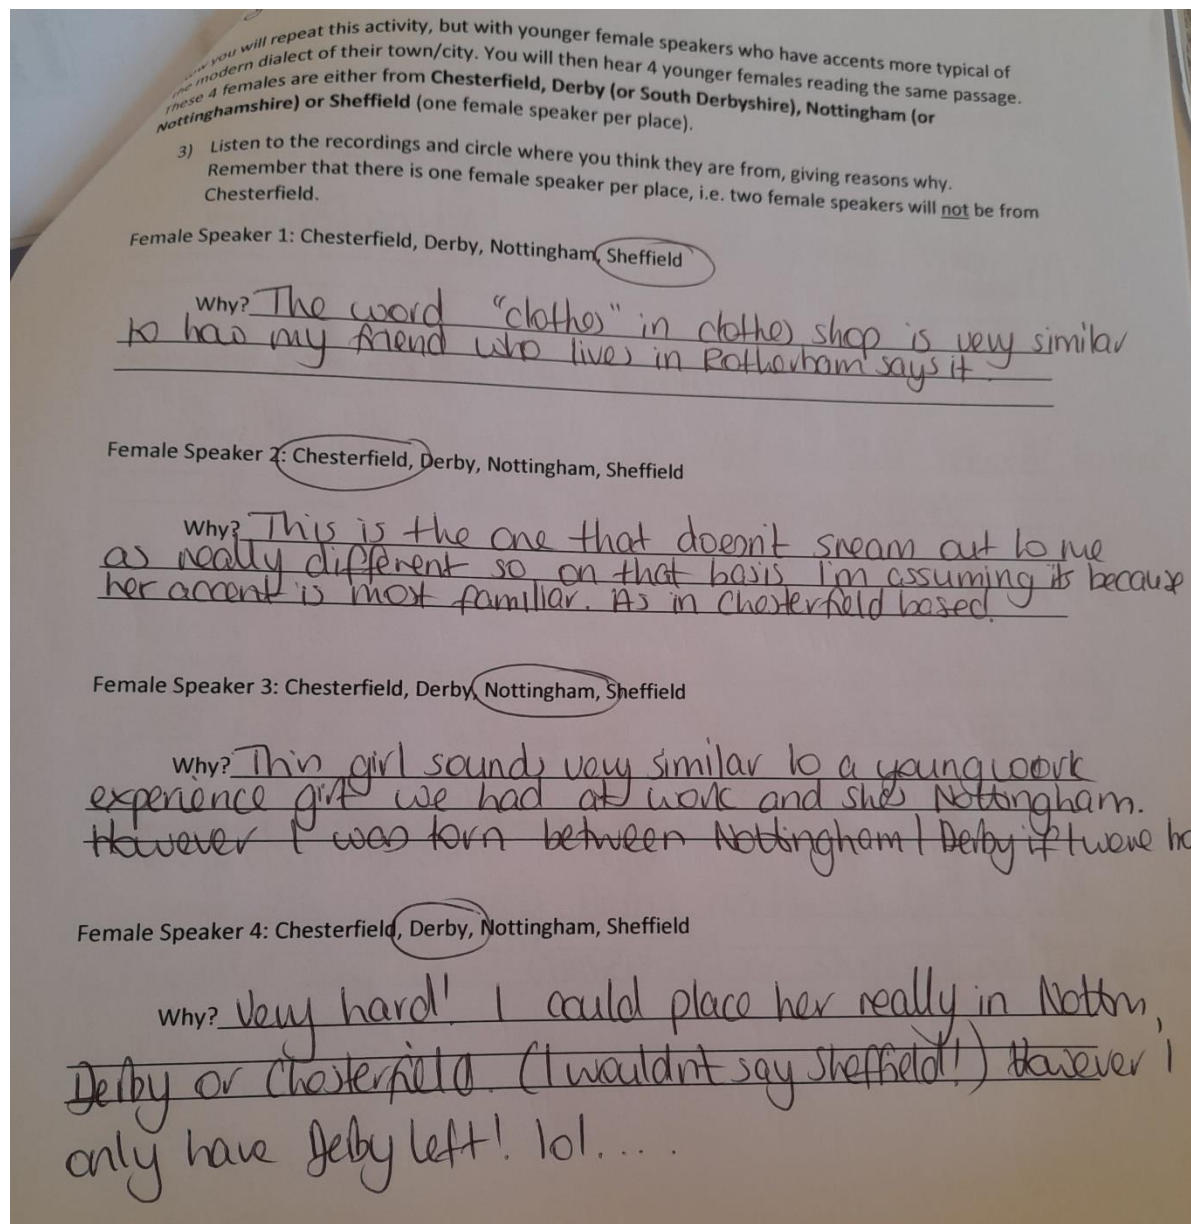 you will repeat this activity, but with younger female speakers who have accents more typical of
the modern dialect of their town/city. You will then hear 4 younger females reading the same passage.
These 4 females are either from Chesterfield, Derby (or South Derbyshire), Nottingham (or
Nottinghamshire) or Sheffield (one female speaker per place).
3) Listen to the recordings and circle where you think they are from, giving reasons why.
Remember that there is one female speaker per place, i.e. two female speakers will not be from
Chesterfield.
Female Speaker 1: Chesterfield, Derby, Nottingham, Sheffield
Why? The word "clothes" in clothes shop is very similar
to how my friend who lives in Rotherham says it
Female Speaker 2: Chesterfield, Derby, Nottingham, Sheffield
Why? This is the one that doesn't sream out to me
as really different so on that basis I'm assuming its because
her accent is most familiar. As in Chesterfield based.
Female Speaker 3: Chesterfield, Derby, Nottingham, Sheffield
Why? This girl sounds very similar to a young work
experience girl we had at work and she's Nottingham.
However I was torn between Nottingham / Derby if I were
Female Speaker 4: Chesterfield, Derby, Nottingham, Sheffield
Why? Very hard! I could place her really in Nottm,
Derby or Chesterfield. (I wouldn't say Sheffield!) However I
only have Derby left! lol....